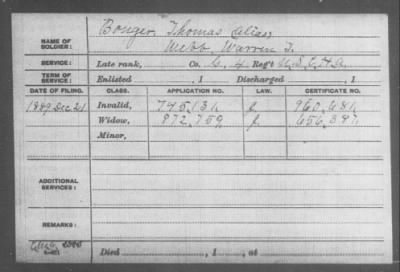 NAME OF SOLDIER: Bonger, Thomas (alias)
Webb, Warren T.
SERVICE: Late rank, Co. G, 4 Reg't U.S.C.H.A.
TERM OF SERVICE: Enlisted , 1 Discharged , 1
DATE OF FILING. CLASS. APPLICATION NO. LAW. CERTIFICATE NO.
1889 Dec 21 Invalid, 745,131 960,681
Widow, 872,759 656,397
Minor,
ADDITIONAL SERVICES:
REMARKS:
Died , 1 , at